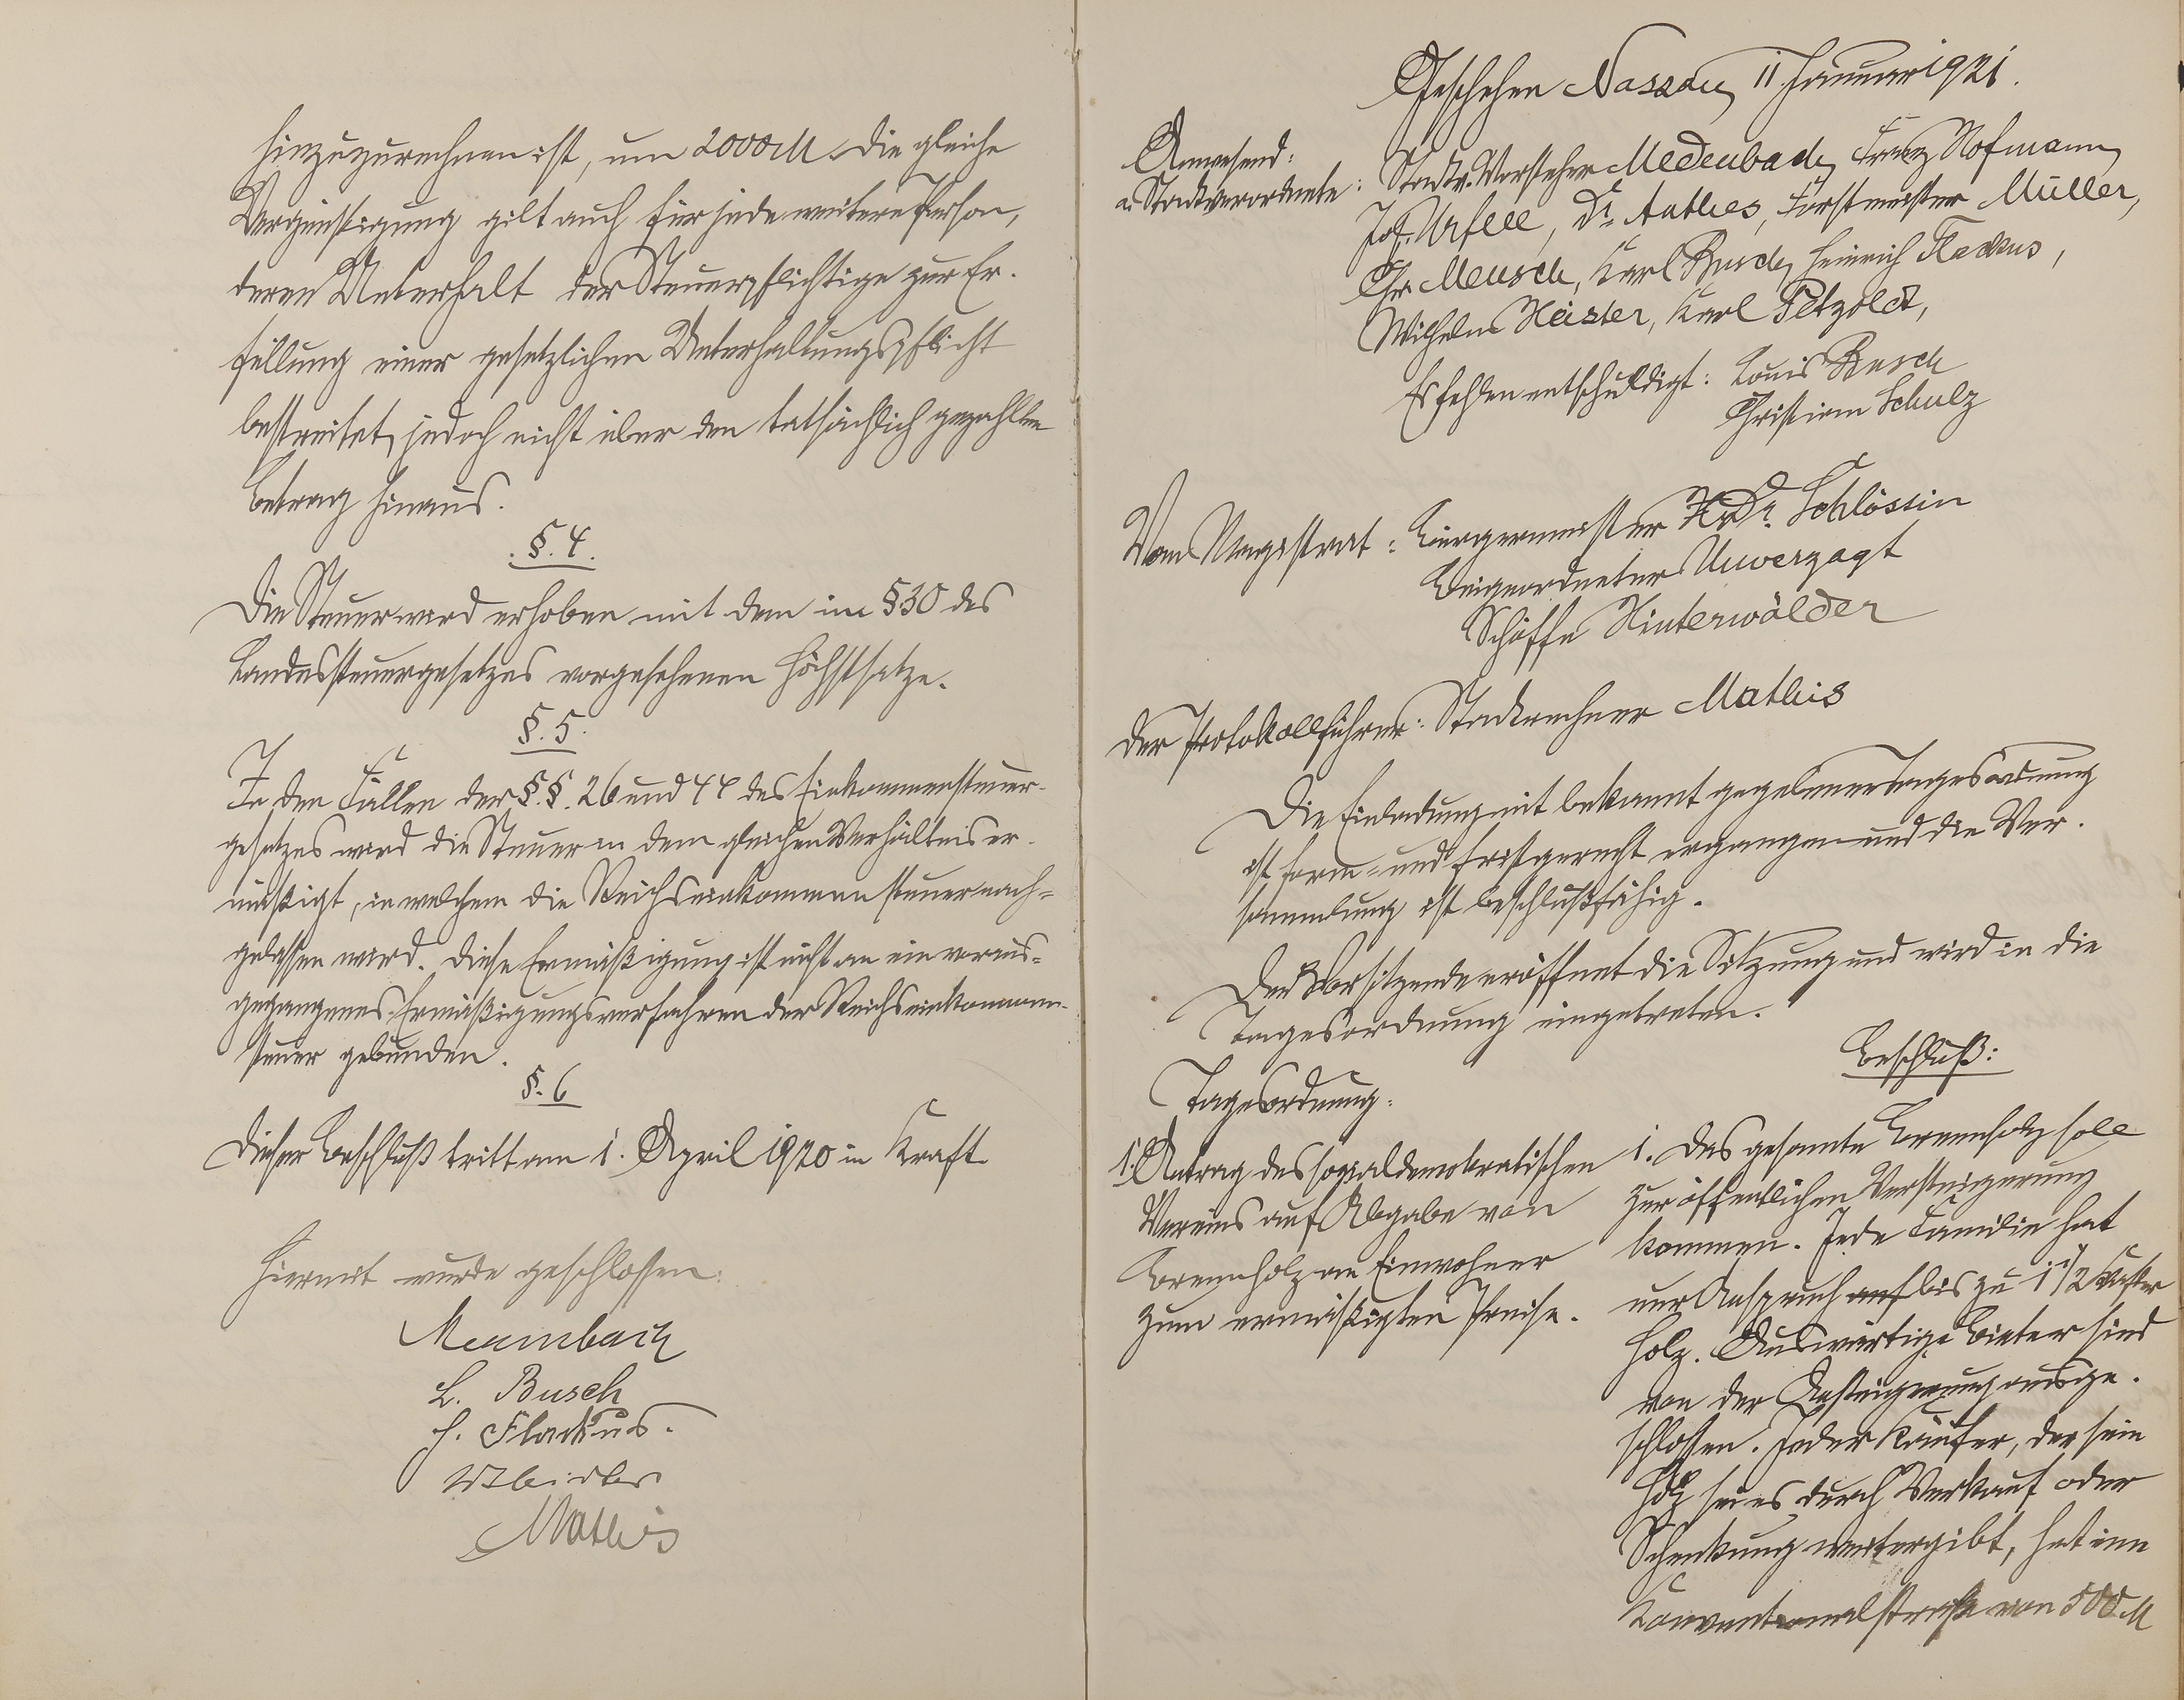 hinzuzurechnen ist, um 2000 M. Die gleiche
Vergünstigung gilt auch für jede weitere Person,
deren Unterhalt der Steuerpflichtige zur Er-
füllung einer gesetzlichen Unterhaltungspflicht
bestreitet, jedoch nicht über den tatsächlich gezahlten
Betrag hinaus.
§. 4.
Die Steuer wird erhoben mit dem im § 30 des
Landessteuergesetzes vorgesehenen Höchstsatze.
§. 5.
In den Fällen der §.§. 26 und 44 des Einkommensteuer-
gesetzes wird die Steuer in dem gleichen Verhältnis er-
mäßigt, in welchem die Reichseinkommensteuer nach=
gelassen wird. Diese Ermäßigung ist nicht an ein voraus=
gegangenes Ermäßigungsverfahren der Reichseinkommen-
steuer gebunden.
§. 6
Dieser Beschluß tritt am 1. April 1920 in Kraft.
Hiermit wurde geschlossen.
L. Busch
H. Flackus.
Mathis
Geschehen Nassau, 11 Januar 1921.
Anwesend:
a. Stadtverordnete: Stadtv. Vorsteher Medenbach, Franz Hofmann,
Jos. Urfell, Dr. Anthes, Forstmeister Müller,
Chr. Meusch, Karl Busch, Heinrich Flackus,
Wilhelm Heister, Karl Petzoldt,
Es fehlen entschuldigt: Louis Busch
Christian Schulz
Vom Magistrat: Bürgermeister Dr. Schlössin
Beigeordneter Unverzagt
Schöffe Hinterwälder
Der Protokollführer: Stadtrechner Mathis
Die Einladung mit bekannt gegebener Tagesordnung
ist form- und fristgerecht ergangen und die Ver-
sammlung ist beschlußfähig.
Der Vorsitzende eröffnet die Sitzung und wird in die
Tagesordnung eingetreten.
Tagesordnung:
1. Antrag des sozialdemokratischen
Vereins auf Abgabe von
Brennholz an Einwohner
zum ermäßigten Preise.
Beschluß:
1. Das gesamte Brennholz soll
zur öffentlichen Versteigerung
kommen. Jede Familie hat
nur Anspruch auf bis zu 1 1/2 Klafter
Holz. Auswärtige Bieter sind
von der Ansteigerung ausge-
schlossen. Jeder Käufer, der sein
Holz sei es durch Verkauf oder
Schenkung weitergibt, hat eine
Konventionalstrafe von 500 M